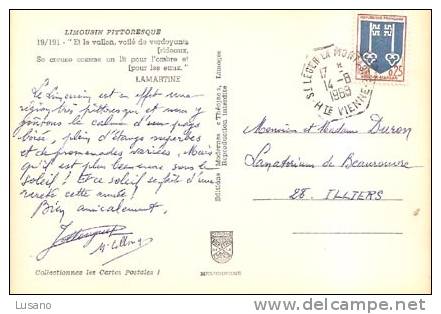 LIMOUSIN PITTORESQUE
19/191 - "Et le vallon, voilé de verdoyants
[rideaux,
Se creuse comme un lit pour l'ombre et
[pour les eaux."
LAMARTINE
Le Limousin est en effet une
région très pittoresque et nous y
goûtons le calme d'un pays
boisé, plein d'étangs superbes
et de promenades variées. Mais
qu'il est plus beau sous le
soleil ! Et ce soleil se fait d'une
rareté cette année !
Bien amicalement,
Collectionnez les Cartes Postales !
Editions Modernes « Théojac », Limoges
Reproduction interdite
REPUBLIQUE FRANÇAISE
0,25
ST LEGER LA MONTAGNE
17 *
14 - 8
1969
HTE VIENNE
Monsieur et Madame Duron
Sanatorium de Beaurouvre
28. ILLIERS
Lusano
www.delcampe.net